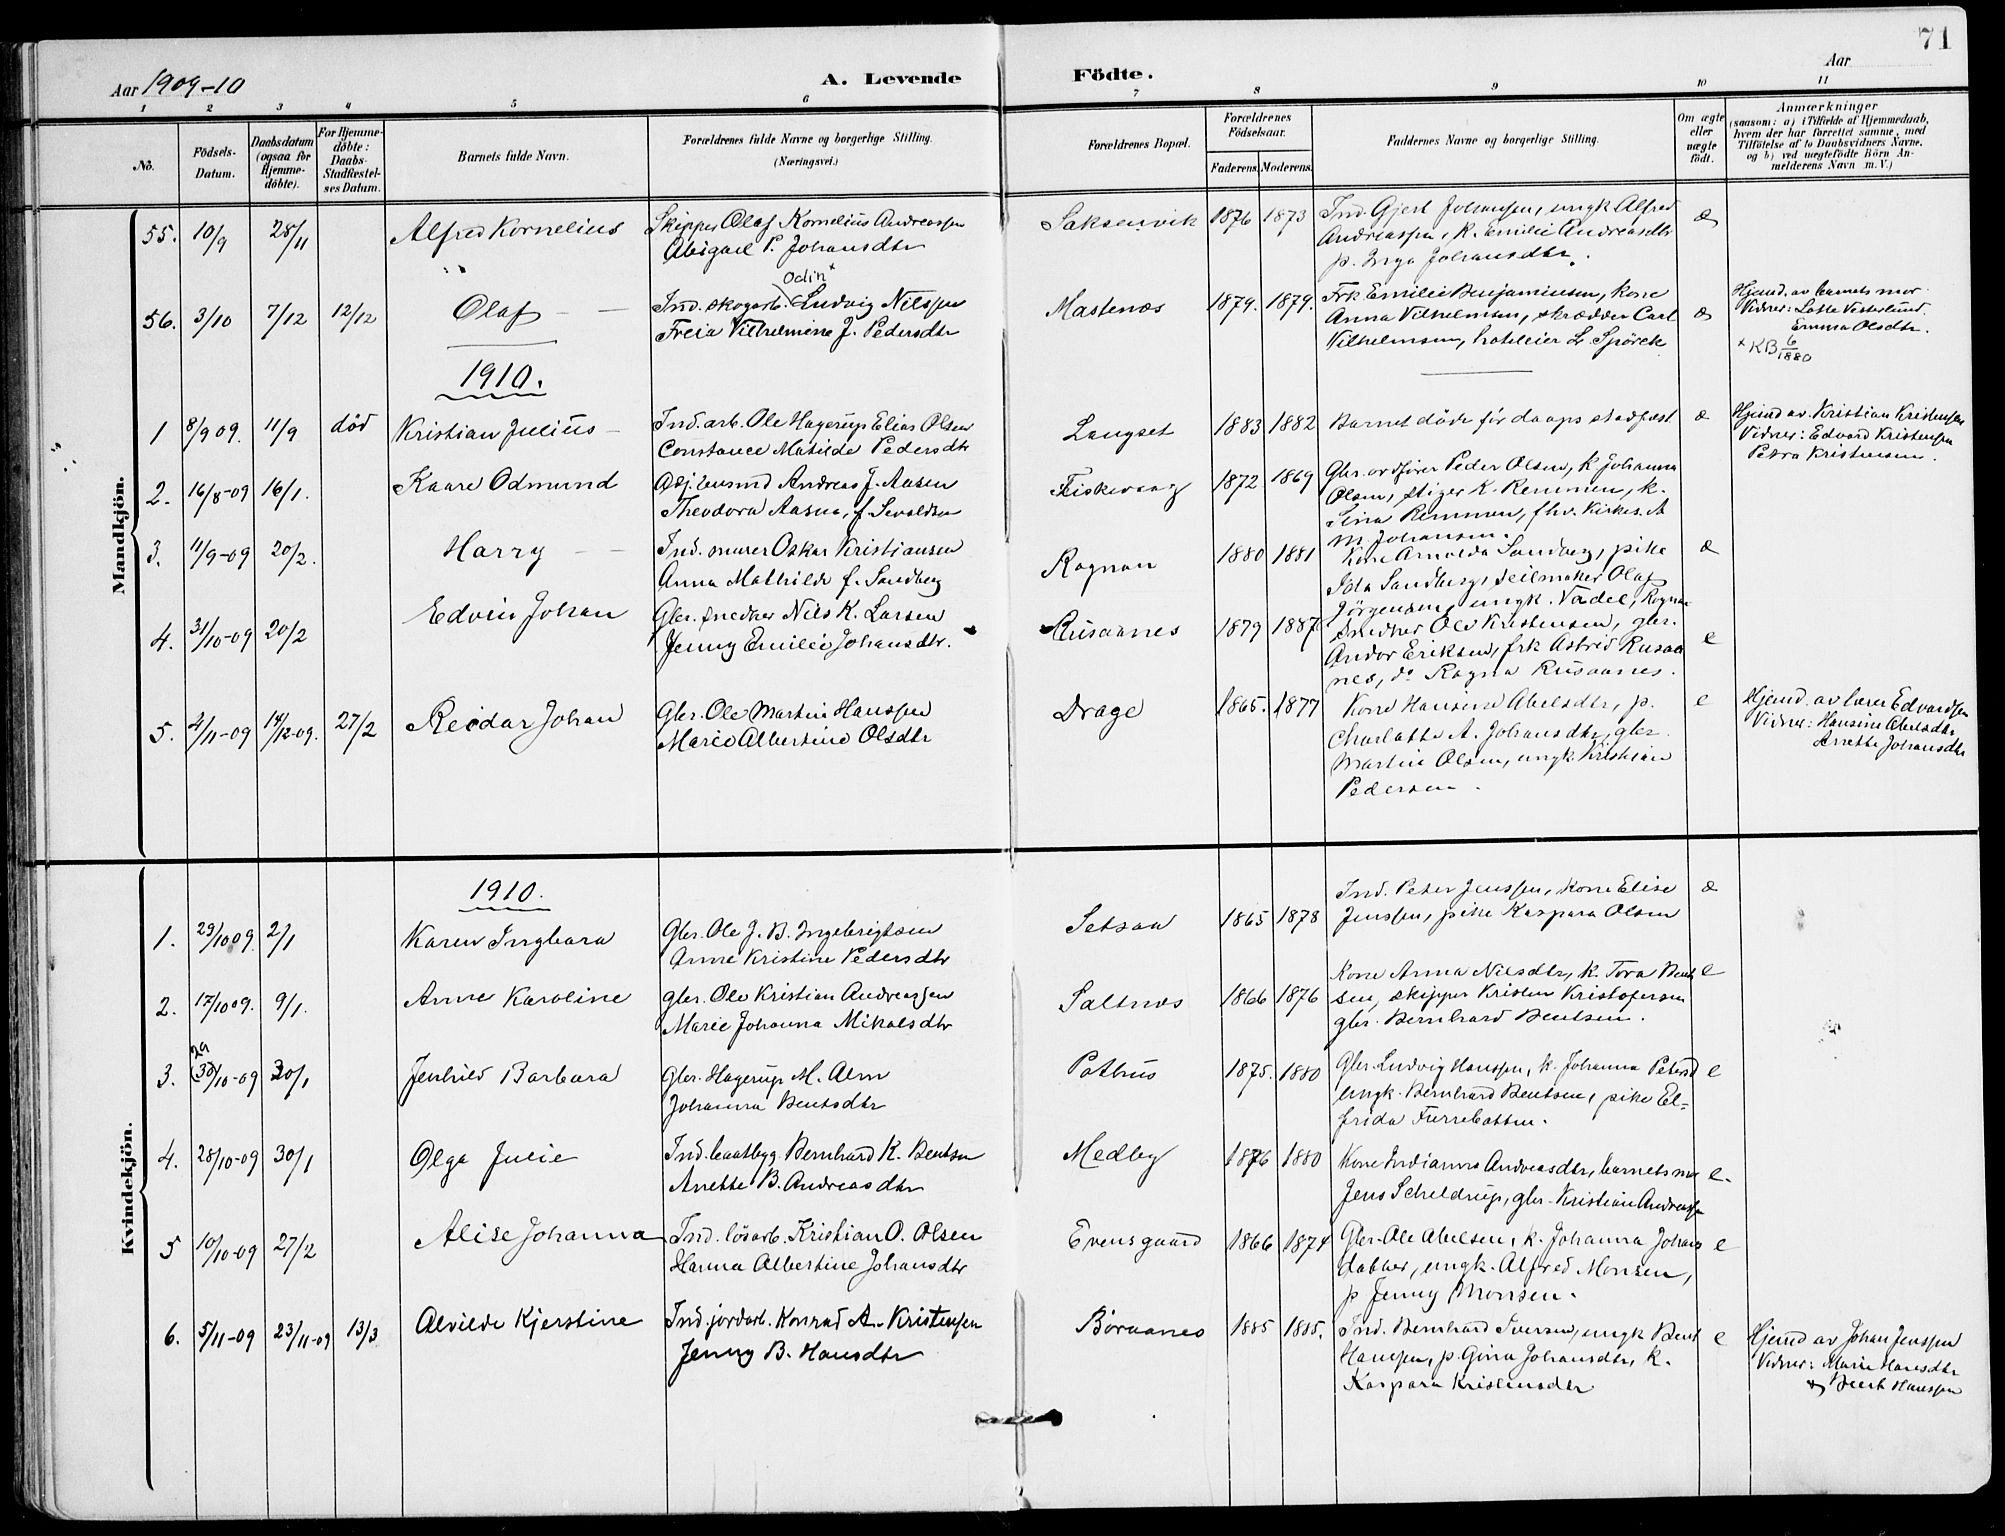 71
Aar 1909-10
A. Levende Födte.
Aar
1 2 3 4 5 6 7 8 9 10 11
No.
Födsels-Datum.
Daabsdatum (ogsaa for Hjemme-döbte).
For Hjemme-döbte: Daabs-Stadfæstel-ses Datum.
Barnets fulde Navn.
Forældrenes fulde Navne og borgerlige Stilling.
(Næringsvei.)
Forældrenes Bopæl.
Forældrenes Födselsaar.
Faderens. Moderens.
Faddernes Navne og borgerlige Stilling.
Om ægte eller uægte födt.
Anmærkninger
(saasom: a) i Tilfælde af Hjemmedaab,
hvem der har forrettet samme, med
Tilföielse af to Daabsvidners Navne,
og b) ved uægtefödte Börn An-
melderens Navn m. V.)
Mandkjön.
55. 10/9 28/11 Alfred Kornelius Skipper Olaf Kornelius Andreassen Saksenvik 1876 1873 Ind. Gjert Johansen, ungk Alfred æ
Abigael P. Johansdtr Andreassen, k. Emilie Andreasdtr
p. Inga Johansdtr.
Odin x
56. 3/10 7/12 12/12 Olaf Ind. skogarb. Ludvig Nilssen Mastenæs 1879. 1879. Frk Emilie Benjaminsen, kone æ Hjemd. av barnets mor
Freia Vilhelmine J. Pedersdtr Anna Vilhelmsen, skrædder Carl Vidner: Lotte Vesterlund
Vilhelmsen, hoteleier L. Spörck Emma Olsdtr.
x KB 6/1880
1910.
1 8/9 09. 11/9 död Kristian Julius Ind. arb. Ole Hagerup Elias Olsen Langset 1883 1882 Barnet döde för daaps stadfæst æ Hjemd av. Kristian Kristensen
Constance Matilde Pedersdtr Vidner: Edvard Kristensen
Petra Kristensen.
2. 16/8-09 16/1. Kaare Odmund Andreas J. Aasen Fiskevaag 1872 1869 Gbr. ordfører Peder Olsen, k Johanna
Theodora Aasen, f. Sevaldsen Olsen, stiger K. Remmen, k.
Sina Remmen, fhv. Kirkes.
M. Johansen.
3. 11/9-09 20/2. Harry Ind. murer Oskar Kristiansen Rognan 1880 1881 Kone Arnolda Sandberg, pike æ
Anna Mathilde f. Sandberg Ida Sandberg, seilmaker Olaf
Jörgensen, ungk. Vadel, Rognan
4. 31/10-09 20/2 Edvin Johan Gbr. snedker Nils K. Larsen Rusaanes 1879 1887 Snedker Ole Kristensen, gbr. e
Jenny Emilie Johansdtr. Andor Eriksen, frk Astrid Rusaa
nes, do Ragna Rusaanes.
5. 4/11-09 14/12-09. 27/2 Reidar Johan Gbr. Ole Martin Hanssen Drage 1865. 1877 Kone Hansine Abelsdtr, p. e Hjemd. av lærer Edvardsen
Marie Albertine Olsdtr Charlotte A. Johansdtr, gbr. Vidner: Hansine Abelsdtr
Martin Olsen, ungk Kristian Anette Johansdtr
Pedersen.
Kvindekjön.
1910.
1. 29/10 09. 2/1 Karen Ingbara Gbr. Ole J. B. Ingebrigtsen Setsaa 1865 1878 Ind. Peter Jenssen, kone Elise æ
Anne Kristine Pedersdtr Jenssen, pike Kaspara Olsen
2. 17/10 09. 9/1. Anne Karoline Gbr. Ole Kristian Andreassen Saltnes 1866 1876 Kone Anna Nilsdtr, k. Tora Bent e
Marie Johanna Mikalsdtr sen, skipper Kristen Kristofersen
gbr. Bernhard Bentsen.
29
3. (30)/10-09 30/1 Jenhild Barbara Gbr. Hagerup M. Alm Pothus 1875. 1880 Gbr. Ludvig Hanssen, k. Johanna Petersd e
Johanna Bentsdtr ungk. Bernhard Bentsen, pike El-
frida Furrebotten.
4. 28/10-09 30/1 Olga Julie Ind. baatbyg. Bernhard K. Bentsen Medby 1876 1880 Kone Indianna Andreasdtr, barnets mor e.
Anette B. Andreasdtr Jens Scheldrup, gbr. Kristian Andreassen
5 10/10-09 27/2 Alise Johanna Ind. lösarb. Kristian O. Olsen Evensgaard 1866 1874 Gbr. Ole Abelsen, k. Johanna Johans e
Hanna Albertine Johansdtr datter, ungk. Alfred Monsen,
p Jenny Monsen.
6. 5/11-09 23/11-09 13/3 Alvilde Kjerstine Ind. jordarb. Konrad A. Kristensen Börvanes 1885 1885. Ind. Bernhard Iversen, ungk Bent e Hjemd av Johan Jenssen
Jenny B. Hansdtr Hanssen, p. Gina Johansdtr, k. Vidner: Marie Hansdtr
Kaspara Kristensdtr Bent Hanssen